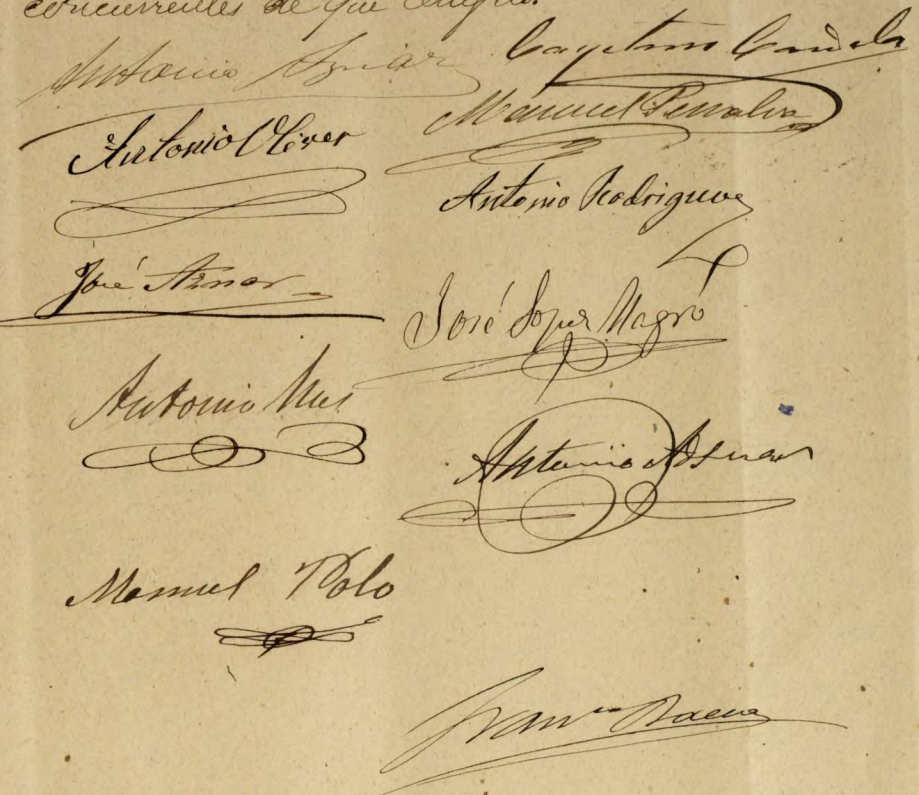 concurrentes de que certifico.
Antonio Aznar Cayetano Candela
Manuel Penalva
Antonio Oliver
Antonio Rodriguez
José Aznar
José Lopez Magró
Antonio Mas
Antonio Asnar
Manuel Polo
Fran.co